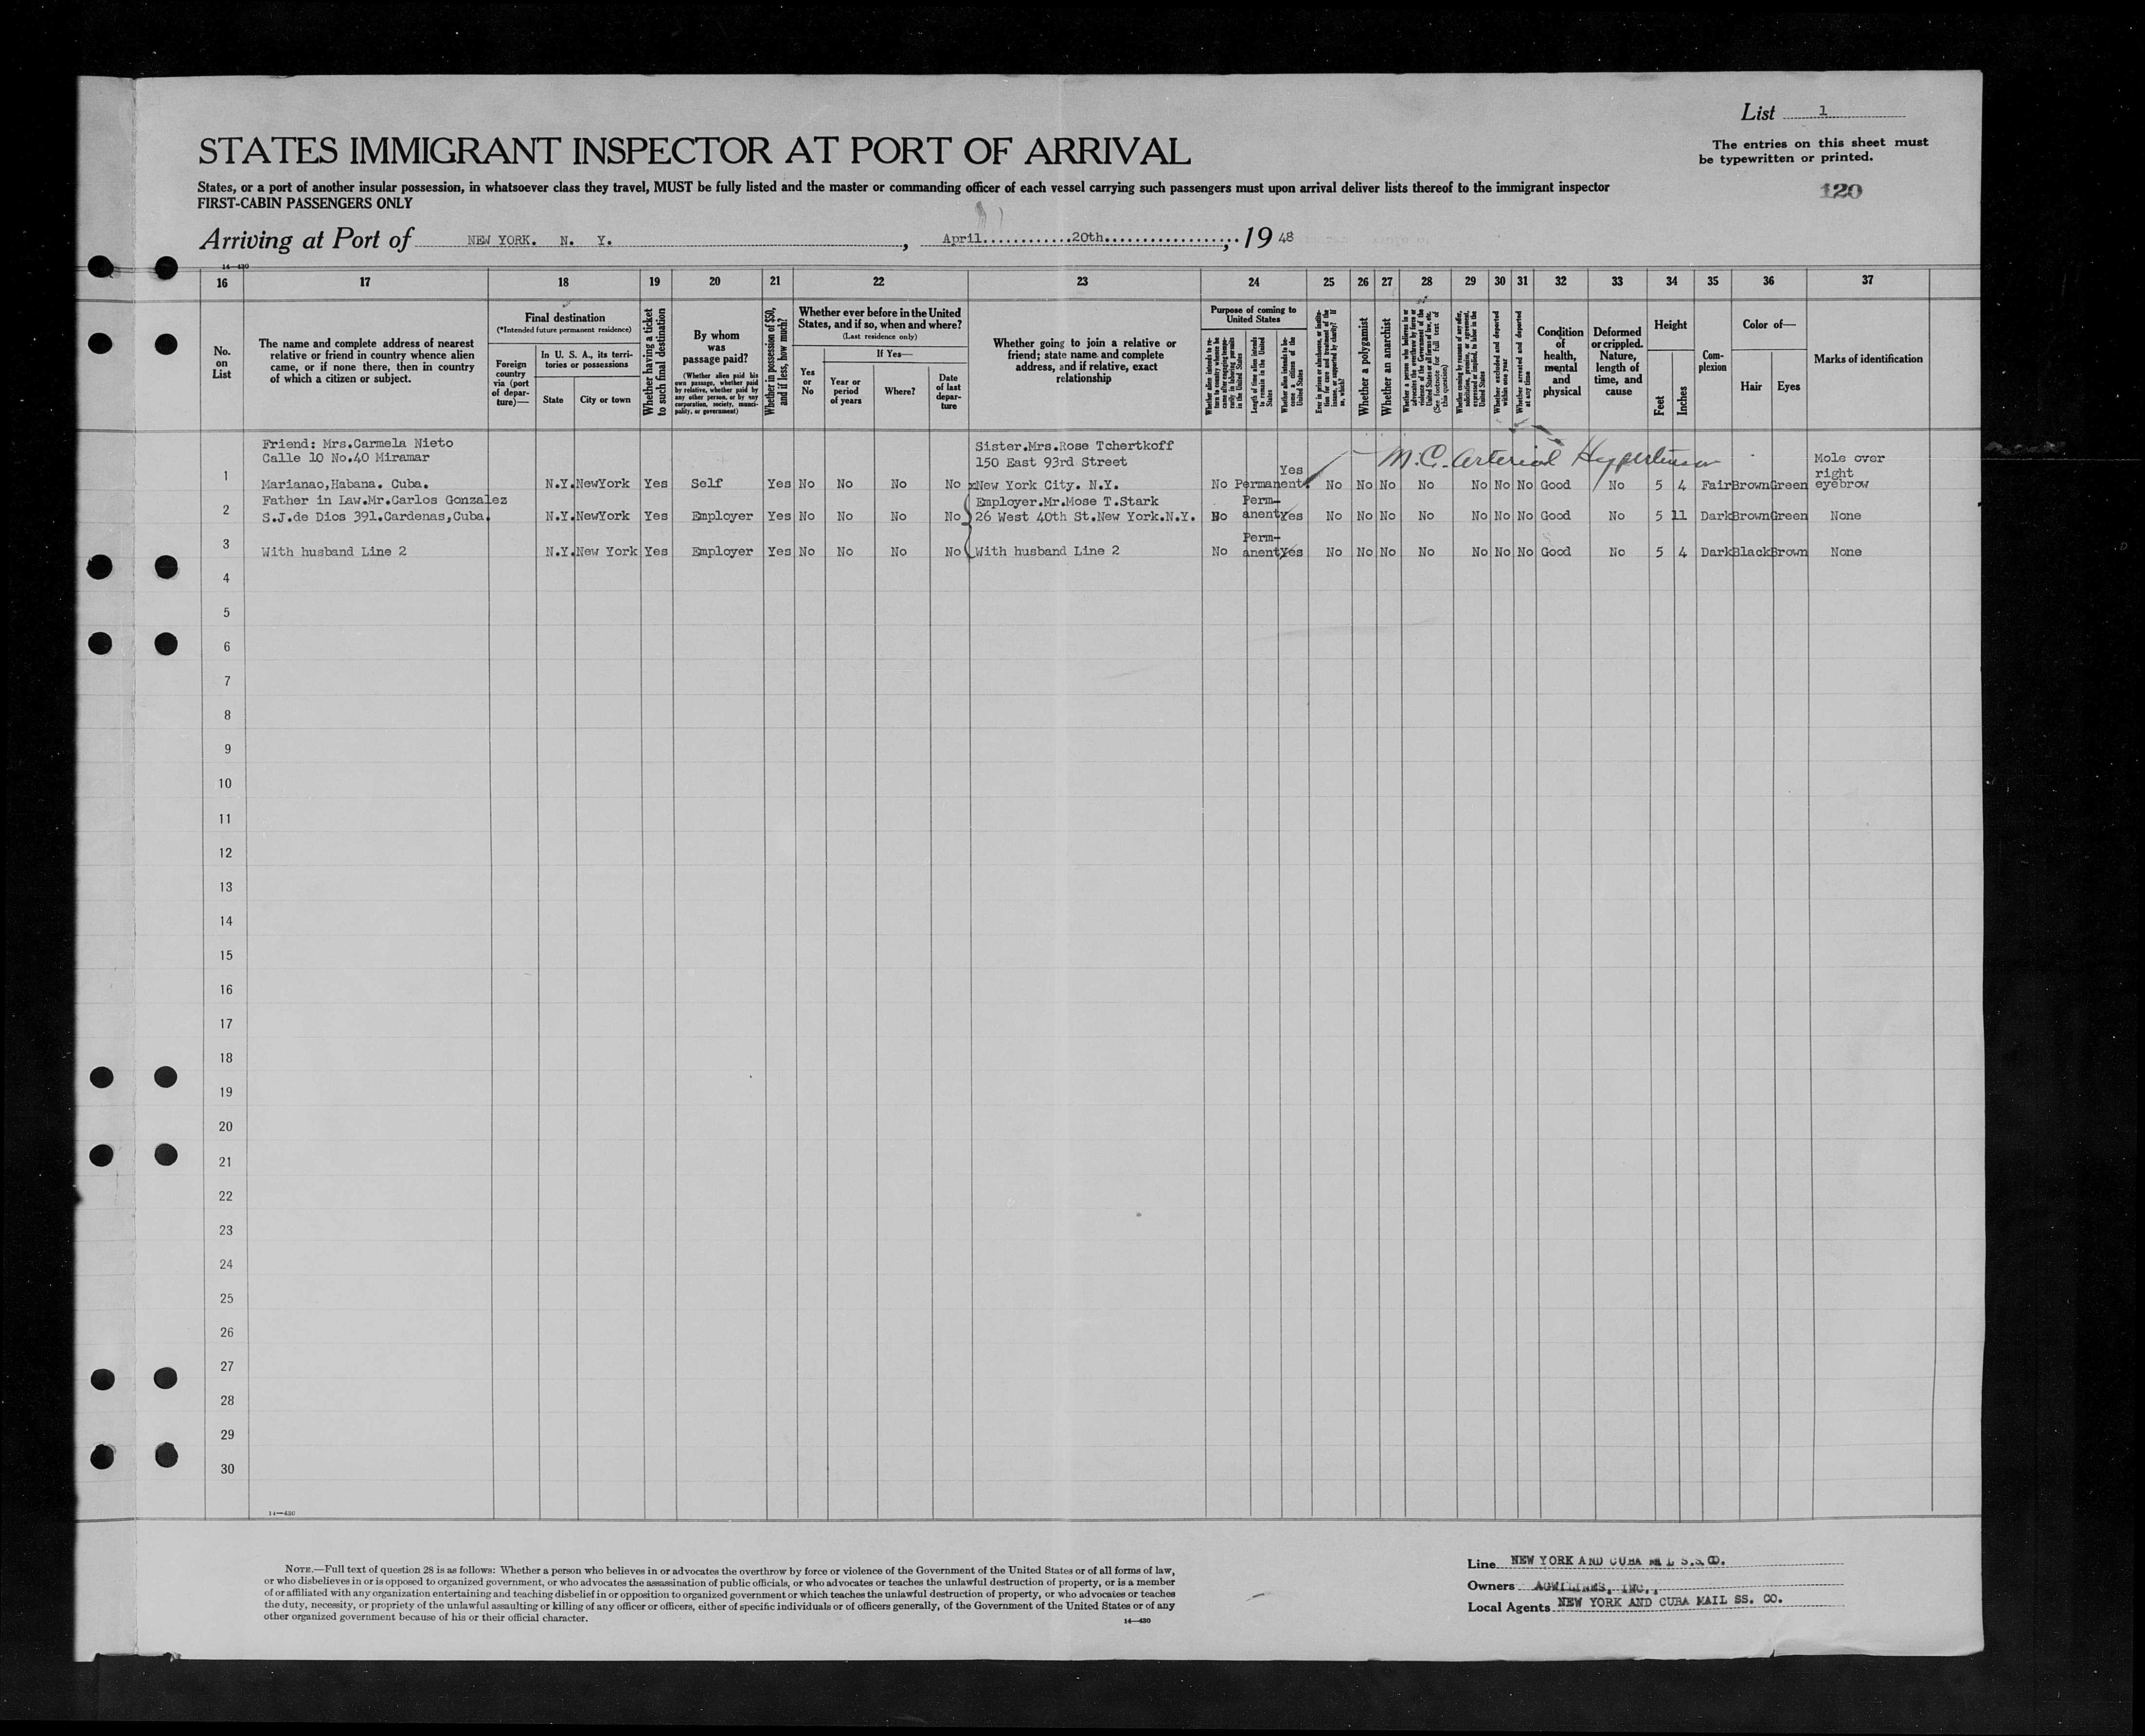 List 1
STATES IMMIGRANT INSPECTOR AT PORT OF ARRIVAL
The entries on this sheet must
be typewritten or printed.
States, or a port of another insular possession, in whatsoever class they travel, MUST be fully listed and the master or commanding officer of each vessel carrying such passengers must upon arrival deliver lists thereof to the immigrant inspector
FIRST-CABIN PASSENGERS ONLY
120
Arriving at Port of NEW YORK. N. Y. , April 20th , 19 48
14—430
16 17 18 19 20 21 22 23 24 25 26 27 28 29 30 31 32 33 34 35 36 37
No.
on
List
The name and complete address of nearest
relative or friend in country whence alien
came, or if none there, then in country
of which a citizen or subject.
Final destination
(*Intended future permanent residence)
Foreign
country
via (port
of depar-
ture)—
In U. S. A., its terri-
tories or possessions
State City or town
Whether having a ticket
to such final destination
By whom
was
passage paid?
(Whether alien paid his
own passage, whether paid
by relative, whether paid by
any other person, or by any
corporation, society, munici-
pality, or government)
Whether in possession of $50,
and if less, how much?
Whether ever before in the United
States, and if so, when and where?
(Last residence only)
Yes
or
No
If Yes—
Year or
period
of years
Where?
Date
of last
depar-
ture
Whether going to join a relative or
friend; state name and complete
address, and if relative, exact
relationship
Purpose of coming to
United States
Whether alien intends to re-
turn to country whence he
came after engaging tempo-
rarily in laboring pursuits
in the United States
Length of time alien intends
to remain in the United
States
Whether alien intends to be-
come a citizen of the
United States
Ever in prison or almshouse, or institu-
tion for care and treatment of the
insane, or supported by charity? If
so, which?
Whether a polygamist
Whether an anarchist
Whether a person who believes in or
advocates the overthrow by force or
violence of the Government of the
United States or all forms of law, etc.
(See footnote for full text of
this question)
Whether coming by reasons of any offer,
solicitation, promise, or agreement,
expressed or implied, to labor in the
United States
Whether excluded and deported
within one year
Whether arrested and deported
at any time
Condition
of
health,
mental
and
physical
Deformed
or crippled.
Nature,
length of
time, and
cause
Height
Feet Inches
Com-
plexion
Color of—
Hair Eyes
Marks of identification
Friend: Mrs.Carmela Nieto Sister.Mrs.Rose Tchertkoff
Calle 10 No.40 Miramar 150 East 93rd Street M.C. Arterial Hypertension Mole over
1 Yes right
Marianao,Habana. Cuba. N.Y. NewYork Yes Self Yes No No No No xNew York City. N.Y. No Permanent No No No No No No No Good No 5 4 Fair Brown Green eyebrow
Father in Law.Mr.Carlos Gonzalez Employer.Mr.Mose T.Stark Perm-
2 S.J.de Dios 391.Cardenas,Cuba. N.Y. NewYork Yes Employer Yes No No No No 26 West 40th St.New York.N.Y. No anent Yes No No No No No No No Good No 5 11 Dark Brown Green None
3 Perm-
With husband Line 2 N.Y. New York Yes Employer Yes No No No No With husband Line 2 No anent Yes No No No No No No No Good No 5 4 Dark Black Brown None
4
5
6
7
8
9
10
11
12
13
14
15
16
17
18
19
20
21
22
23
24
25
26
27
28
29
30
14—430
NOTE.—Full text of question 28 is as follows: Whether a person who believes in or advocates the overthrow by force or violence of the Government of the United States or of all forms of law,
or who disbelieves in or is opposed to organized government, or who advocates the assassination of public officials, or who advocates or teaches the unlawful destruction of property, or is a member
of or affiliated with any organization entertaining and teaching disbelief in or opposition to organized government or which teaches the unlawful destruction of property, or who advocates or teaches
the duty, necessity, or propriety of the unlawful assaulting or killing of any officer or officers, either of specific individuals or of officers generally, of the Government of the United States or of any
other organized government because of his or their official character.
14—430
Line NEW YORK AND CUBA MAIL S.S. CO.
Owners AGWILINES, INC.,
Local Agents NEW YORK AND CUBA MAIL SS. CO.